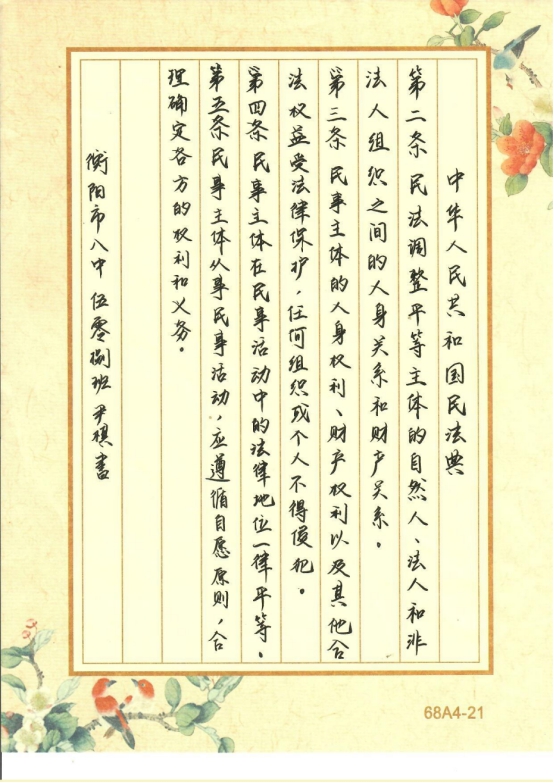 中华人民共和国民法典
第二条 民法调整平等主体的自然人、法人和非
法人组织之间的人身关系和财产关系。
第三条 民事主体的人身权利、财产权利以及其他合
法权益受法律保护，任何组织或个人不得侵犯。
第四条 民事主体在民事活动中的法律地位一律平等。
第五条 民事主体从事民事活动，应遵循自愿原则，合
理确定各方的权利和义务。
衡阳市八中 伍零捌班 尹棋书
68A4-21